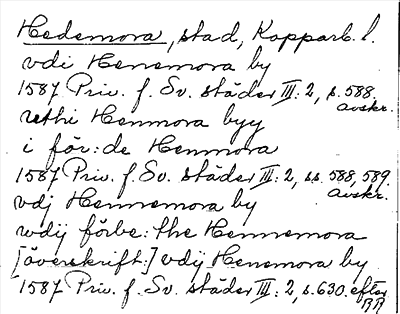 Hedemora, stad, Kopparb. l.
vdi Henemora by
1587 Priv. f. Sv. städer III: 2, s. 588.
avskr.
uthi Henmora byy
i för: de Henmora
1587 Priv. f. Sv. städer III: 2, ss. 588, 589.
avskr.
vdj Hennemora by
wdij förbe: the Hennemora
[överskrift:] vdÿ Henemora by
1587 Priv. f. Sv. städer III: 2, s. 630. efter
RR